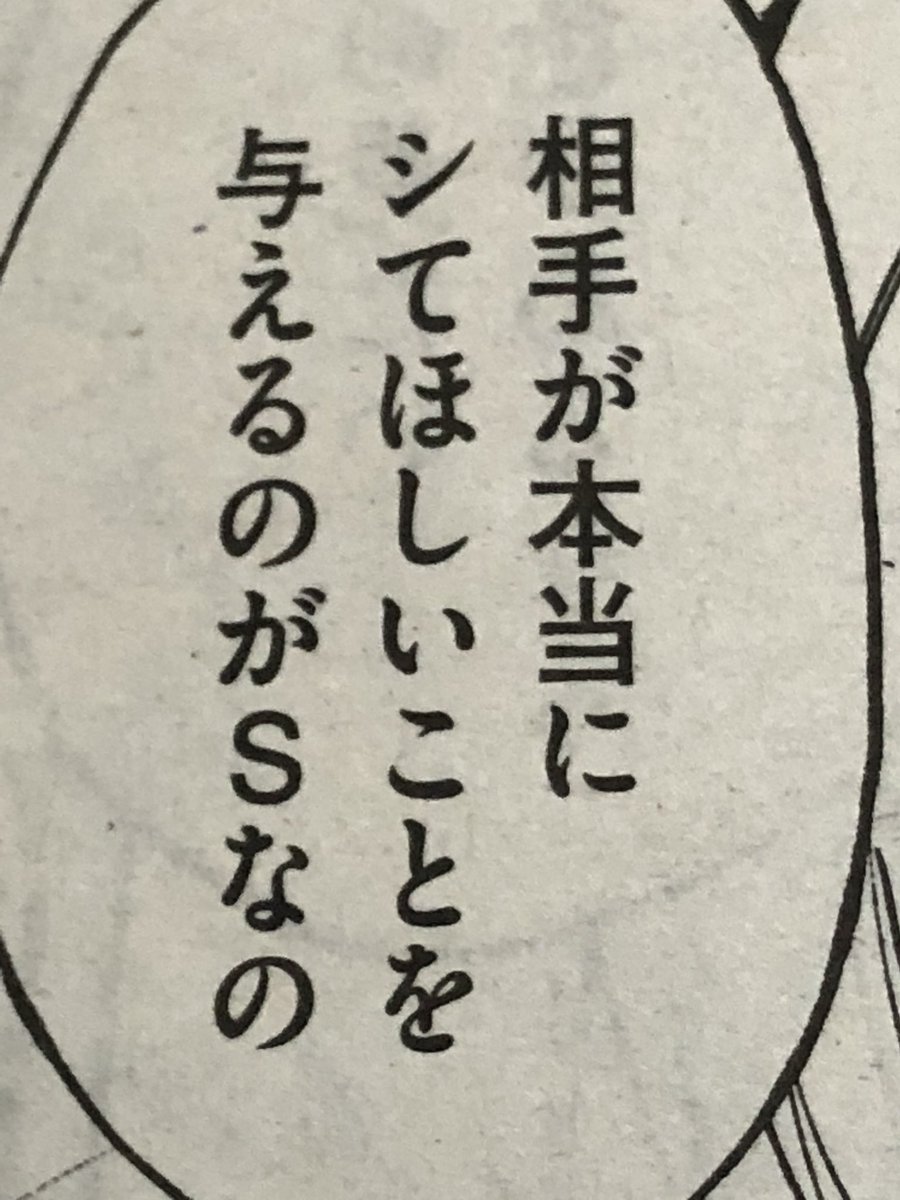 相手が本当に
シてほしいことを
与えるのがSなの